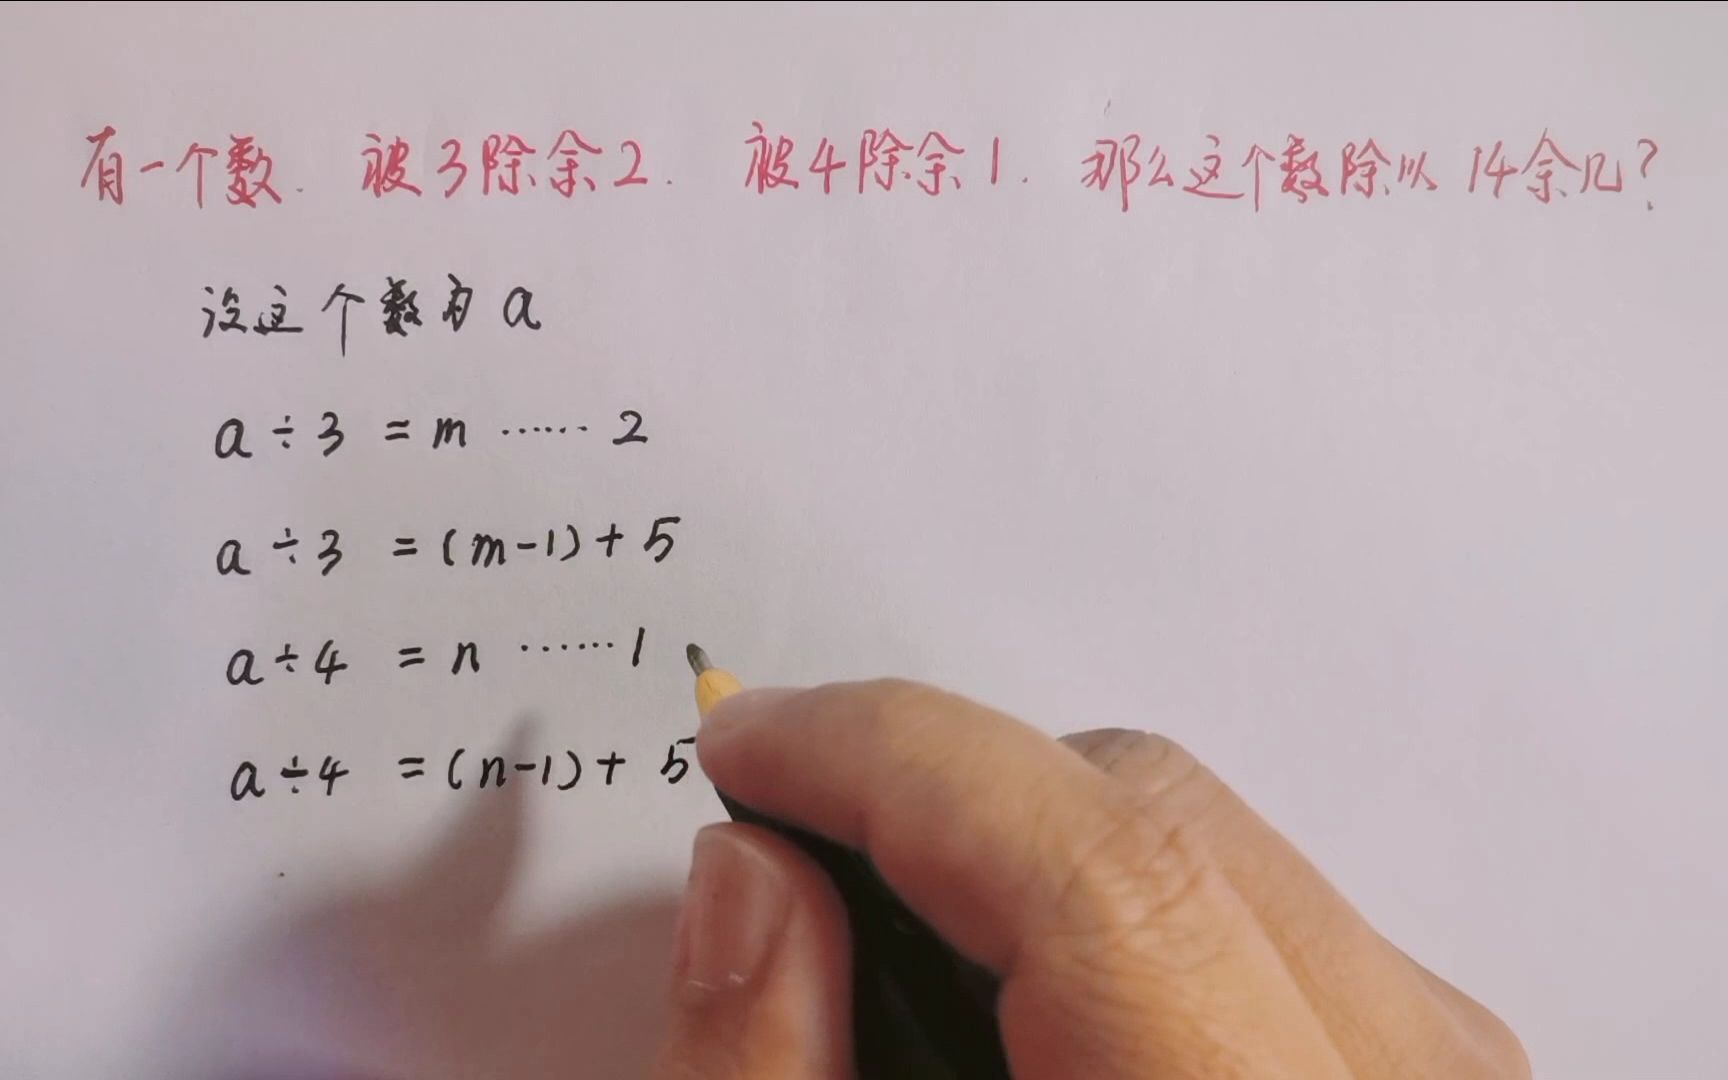 有一个数. 被3除余2. 被4除余1. 那么这个数除以14余几?
设这个数为a
a÷3 =m ······ 2
a÷3 =(m-1)+5
a÷4 =n ······1
a÷4 =(n-1)+ 5